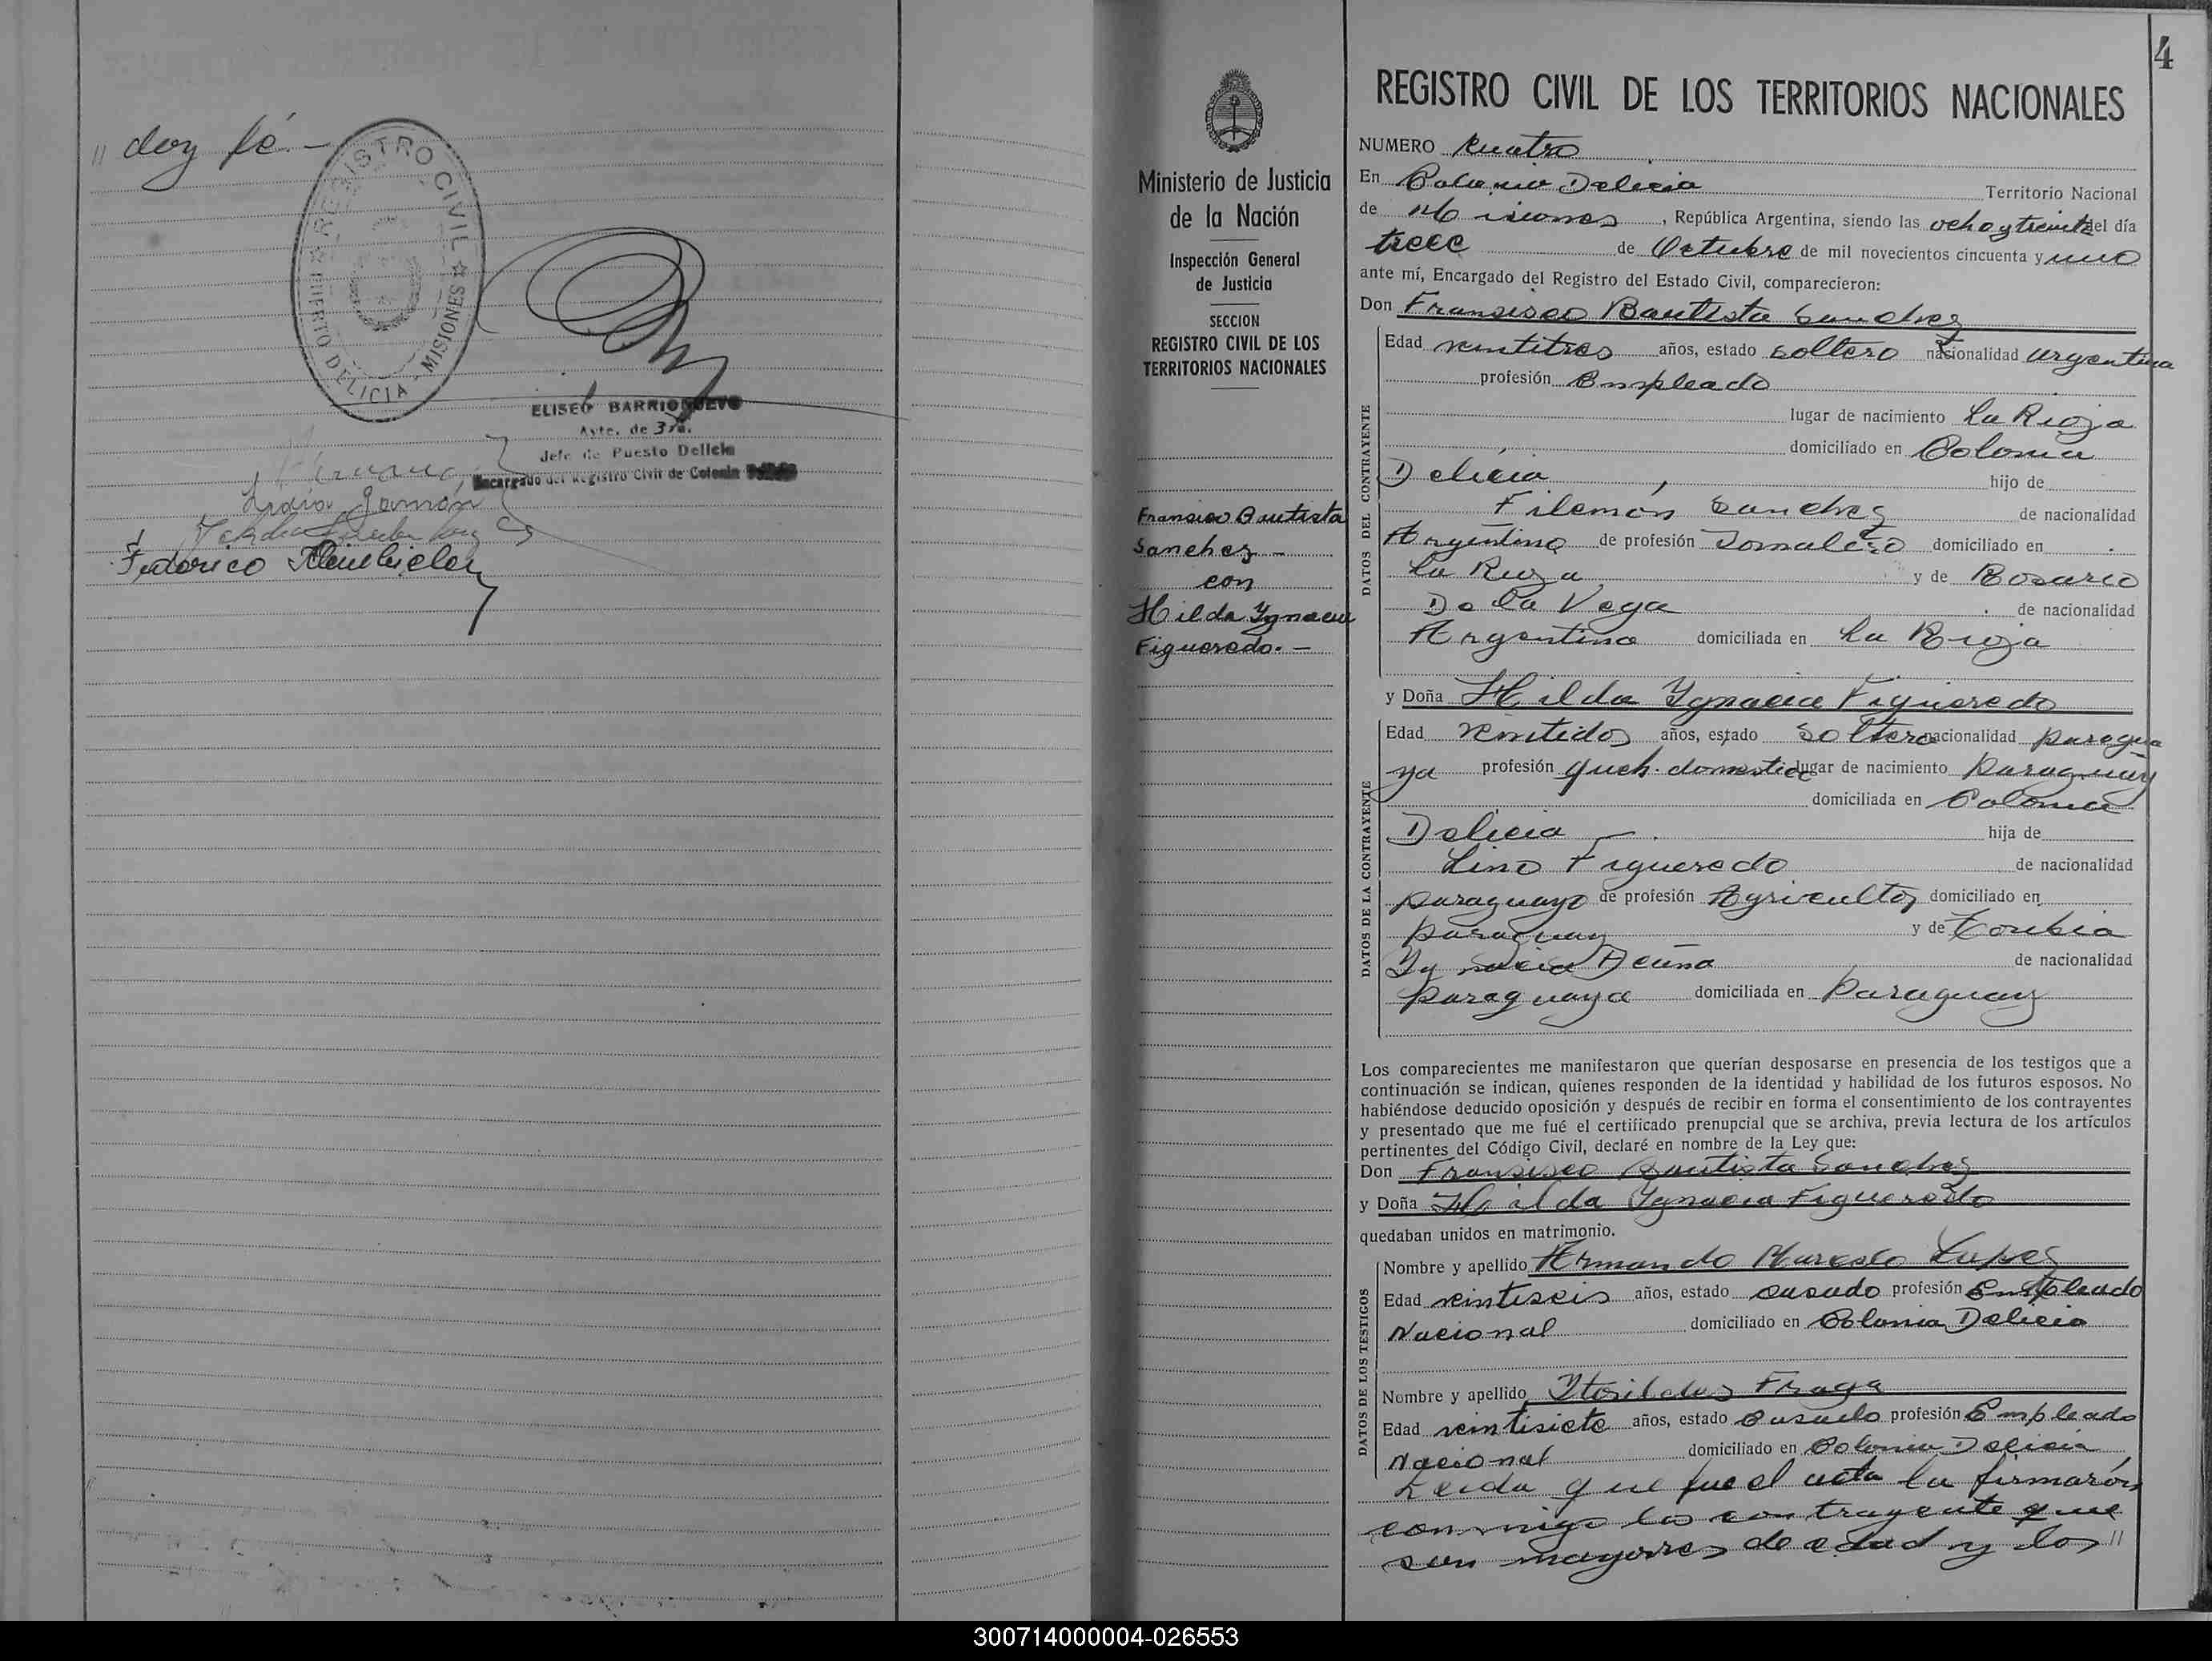 " doy fé. -
REGISTRO CIVIL
PUERTO DELICIA - MISIONES
ELISEO BARRIONUEVO
Ayte. de 3ra.
Jefe de Puesto Delicia
Encargado del Registro Civil de Colonia
Lidia Germán
Federico
4
Ministerio de Justicia
de la Nación
Inspección General
de Justicia
SECCION
REGISTRO CIVIL DE LOS
TERRITORIOS NACIONALES
Fransisco Bautista
Sanchez -
con
Hilda Ygnacia
Figueredo. -
REGISTRO CIVIL DE LOS TERRITORIOS NACIONALES
NUMERO Kuatro
En Colonia Delicia Territorio Nacional
de Misiones, República Argentina, siendo las ocho y treinta del día
trece de Octubre de mil novecientos cincuenta y uno
ante mí, Encargado del Registro del Estado Civil, comparecieron:
Don Fransisco Bautista Sanchez
DATOS DEL CONTRAYENTE
Edad veintitres años, estado soltero nacionalidad argentina
profesión Empleado
lugar de nacimiento La Rioja
domiciliado en Colonia
Delicia, hijo de
Filemón Sanchez de nacionalidad
Argentino de profesión Jornalero domiciliado en
La Rioja y de Rosario
De La Vega de nacionalidad
Argentina domiciliada en La Rioja
y Doña Hilda Ygnacia Figueredo
DATOS DE LA CONTRAYENTE
Edad veintidos años, estado soltera nacionalidad paragua
ya profesión queh. domestico lugar de nacimiento Paraguay
domiciliada en Colonia
Delicia - hija de
Lino Figueredo de nacionalidad
paraguayo de profesión Agricultor domiciliado en
paraguay y de Toribia
Ygnacia Acuña de nacionalidad
paraguaya domiciliada en Paraguay
Los comparecientes me manifestaron que querían desposarse en presencia de los testigos que a
continuación se indican, quienes responden de la identidad y habilidad de los futuros esposos. No
habiéndose deducido oposición y después de recibir en forma el consentimiento de los contrayentes
y presentado que me fué el certificado prenupcial que se archiva, previa lectura de los artículos
pertinentes del Código Civil, declaré en nombre de la Ley que:
Don Fransisco Bautista Sanchez
y Doña Hilda Ygnacia Figueredo
quedaban unidos en matrimonio.
DATOS DE LOS TESTIGOS
Nombre y apellido Armando Marcelo Lopez
Edad veintiseis años, estado casado profesión Empleado
Nacional domiciliado en Colonia Delicia
Nombre y apellido Fraga
Edad veintisiete años, estado Casado profesión Empleado
Nacional domiciliado en Colonia Delicia
Leida que fue el acta la firmarón
con migo los contrayente que
son mayores de edad y los "
300714000004-026553